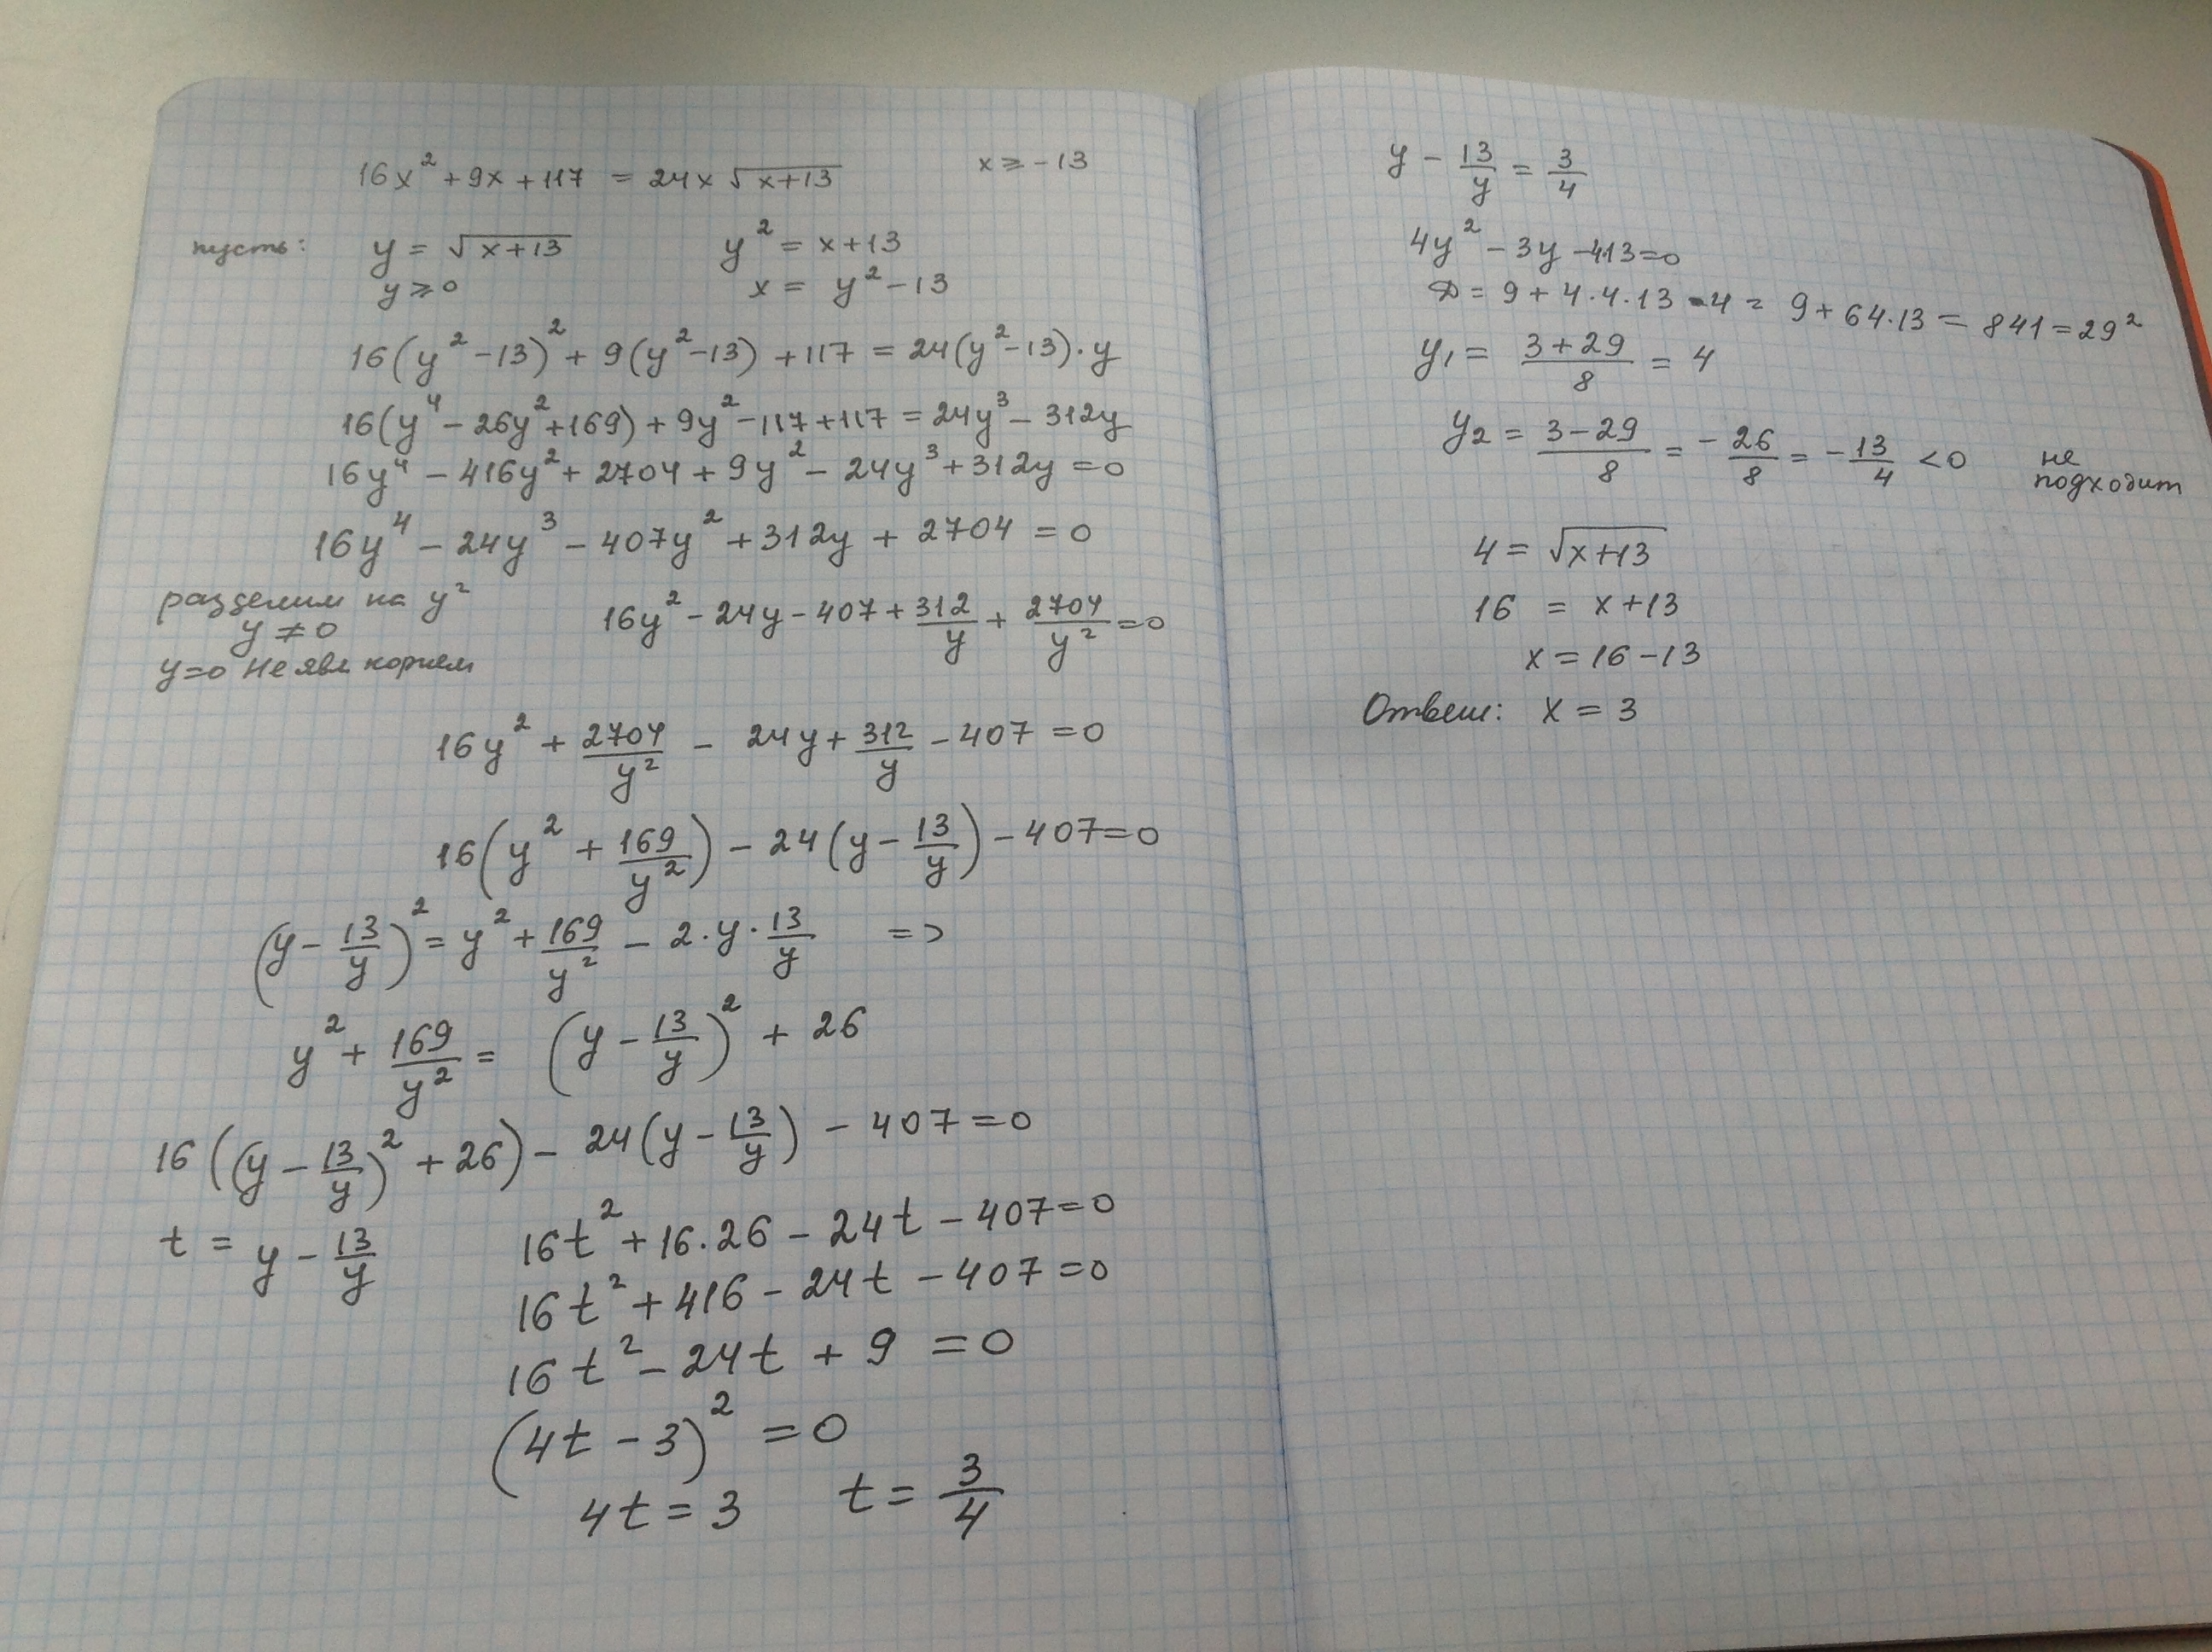 16x² + 9x + 117 = 24x √(x+13)    x ⩾ -13
пусть: y = √(x+13)    y² = x+13
y ⩾ 0    x = y² - 13
16(y² - 13)² + 9(y² - 13) + 117 = 24(y² - 13)·y
16(y⁴ - 26y² + 169) + 9y² - 117 + 117 = 24y³ - 312y
16y⁴ - 416y² + 2704 + 9y² - 24y³ + 312y = 0
16y⁴ - 24y³ - 407y² + 312y + 2704 = 0
разделим на y²
y ≠ 0    16y² - 24y - 407 + 312/y + 2704/y² = 0
y=0 не явл корнем
16y² + 2704/y² - 24y + 312/y - 407 = 0
16(y² + 169/y²) - 24(y - 13/y) - 407 = 0
(y - 13/y)² = y² + 169/y² - 2·y·13/y    =>
y² + 169/y² = (y - 13/y)² + 26
16((y - 13/y)² + 26) - 24(y - 13/y) - 407 = 0
t = y - 13/y    16t² + 16·26 - 24t - 407 = 0
16t² + 416 - 24t - 407 = 0
16t² - 24t + 9 = 0
(4t - 3)² = 0
4t = 3    t = 3/4
y - 13/y = 3/4
4y² - 3y - 4·13 = 0
D = 9 + 4·4·13·4 = 9 + 64·13 = 841 = 29²
y₁ = (3+29)/8 = 4
y₂ = (3-29)/8 = -26/8 = -13/4 < 0    не
подходит
4 = √(x+13)
16 = x+13
x = 16-13
Ответ: x = 3